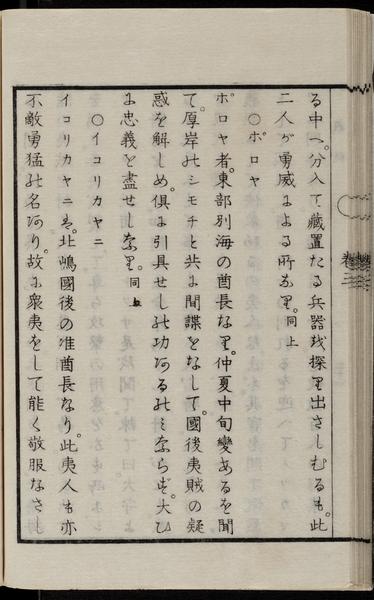 る中へ。分入て。蔵置たる兵器を探り出さしむるも。此
二人が勇威による所なり。同上
〇ポロヤ
ポロヤ者。東部別海の酋長なり。仲夏中旬變あるを聞
て。厚岸のシモチと共に間諜をなして。國後夷賊の疑
惑を解しめ。俱に引具せしの功あるのみならず。大ひ
に忠義を盡せしなり。同上
〇イコリカヤニ
イコリカヤニは。北嶋國後の准酋長なり。此夷人も亦
不敵勇猛の名あり。故に衆夷をして能く敬服なさし